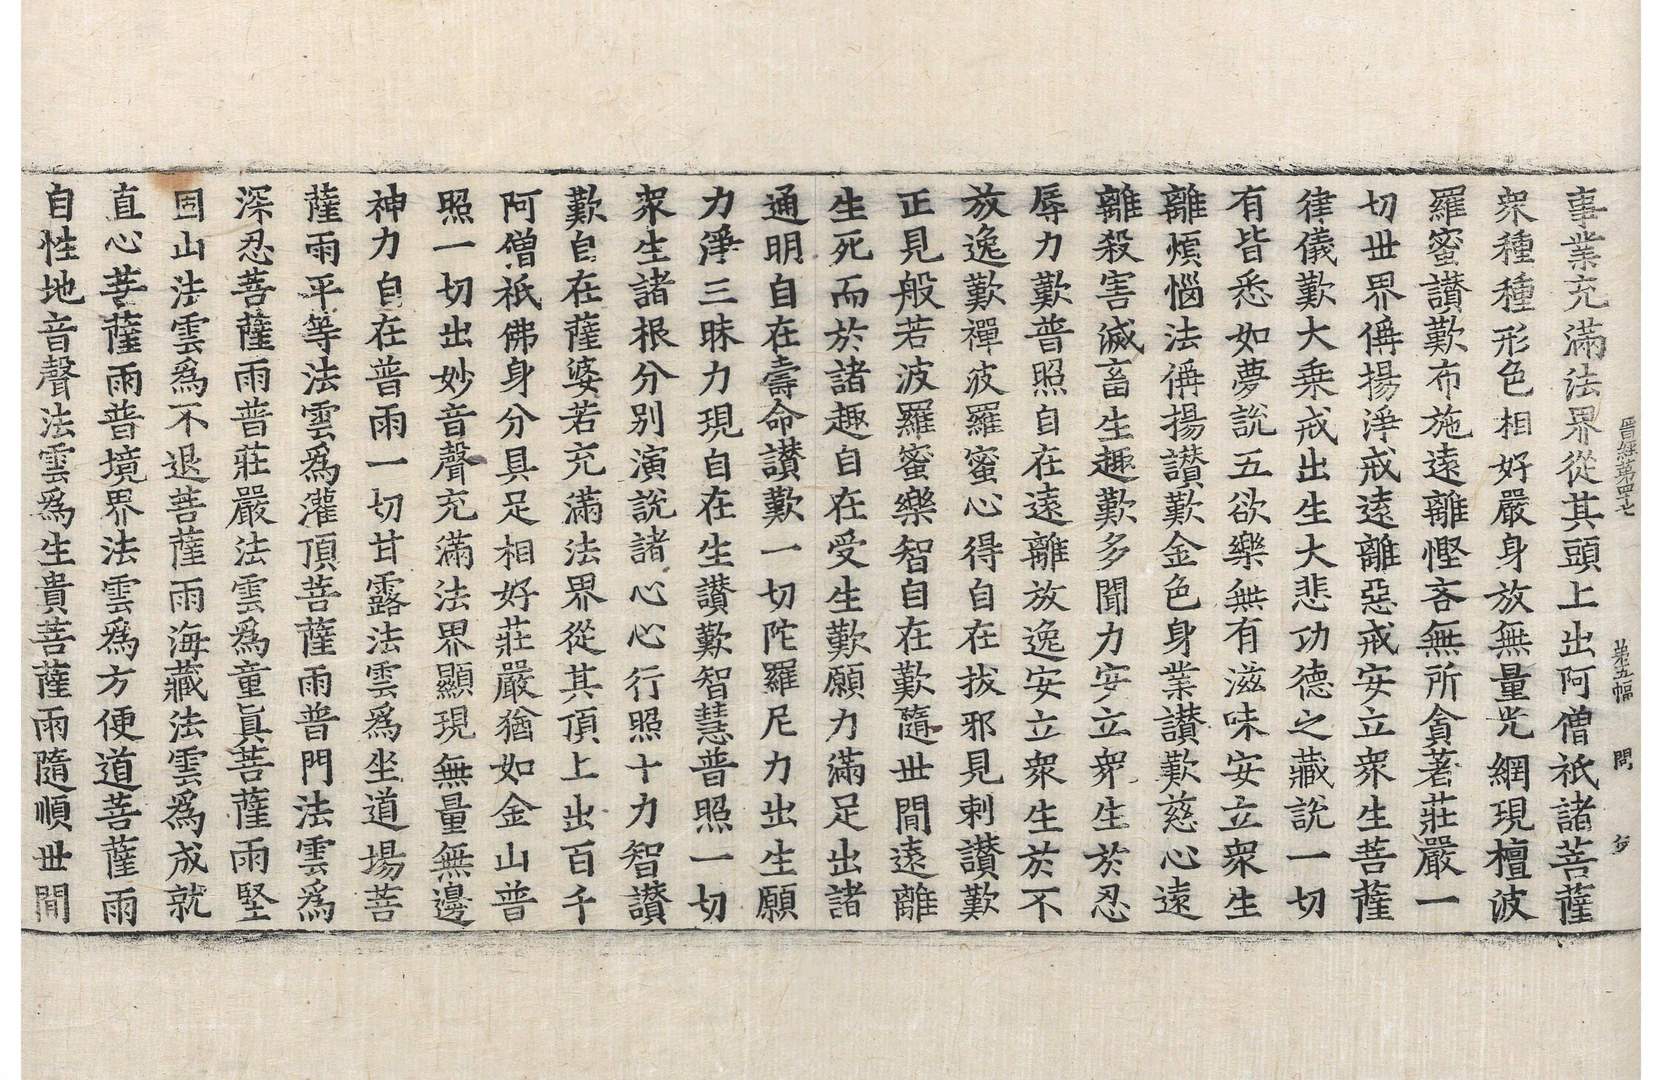 晋經第四十七　第五幅　問　岁
事業充滿法界從其頭上出阿僧祇諸菩薩
衆種種形色相好嚴身放無量光網現檀波
羅蜜讃歎布施遠離慳吝無所貪著莊嚴一
切世界偁揚淨戒遠離惡戒安立衆生菩薩
律儀歎大乗戒出生大悲功德之藏說一切
有皆悉如夢說五欲樂無有滋味安立衆生
離煩惱法偁揚讃歎金色身業讃歎慈心遠
離殺害滅畜生趣歎多聞力安立衆生於忍
辱力歎普照自在遠離放逸安立衆生於不
放逸歎禪波羅蜜心得自在拔邪見刺讃歎
正見般若波羅蜜樂智自在歎隨世間遠離
生死而於諸趣自在受生歎願力滿足出諸
通明自在壽命讃歎一切陀羅尼力出生願
力淨三昧力現自在生讃歎智慧普照一切
衆生諸根分別演說諸心心行照十力智讃
歎自在薩婆若充滿法界從其頂上出百千
阿僧祇佛身分具足相好莊嚴猶如金山普
照一切出妙音聲充滿法界顯現無量無邊
神力自在普雨一切甘露法雲爲坐道場菩
薩雨平等法雲爲灌頂菩薩雨普門法雲爲
深忍菩薩雨普莊嚴法雲爲童眞菩薩雨堅
固山法雲爲不退菩薩雨海藏法雲爲成就
直心菩薩雨普境界法雲爲方便道菩薩雨
自性地音聲法雲爲生貴菩薩雨隨順世間